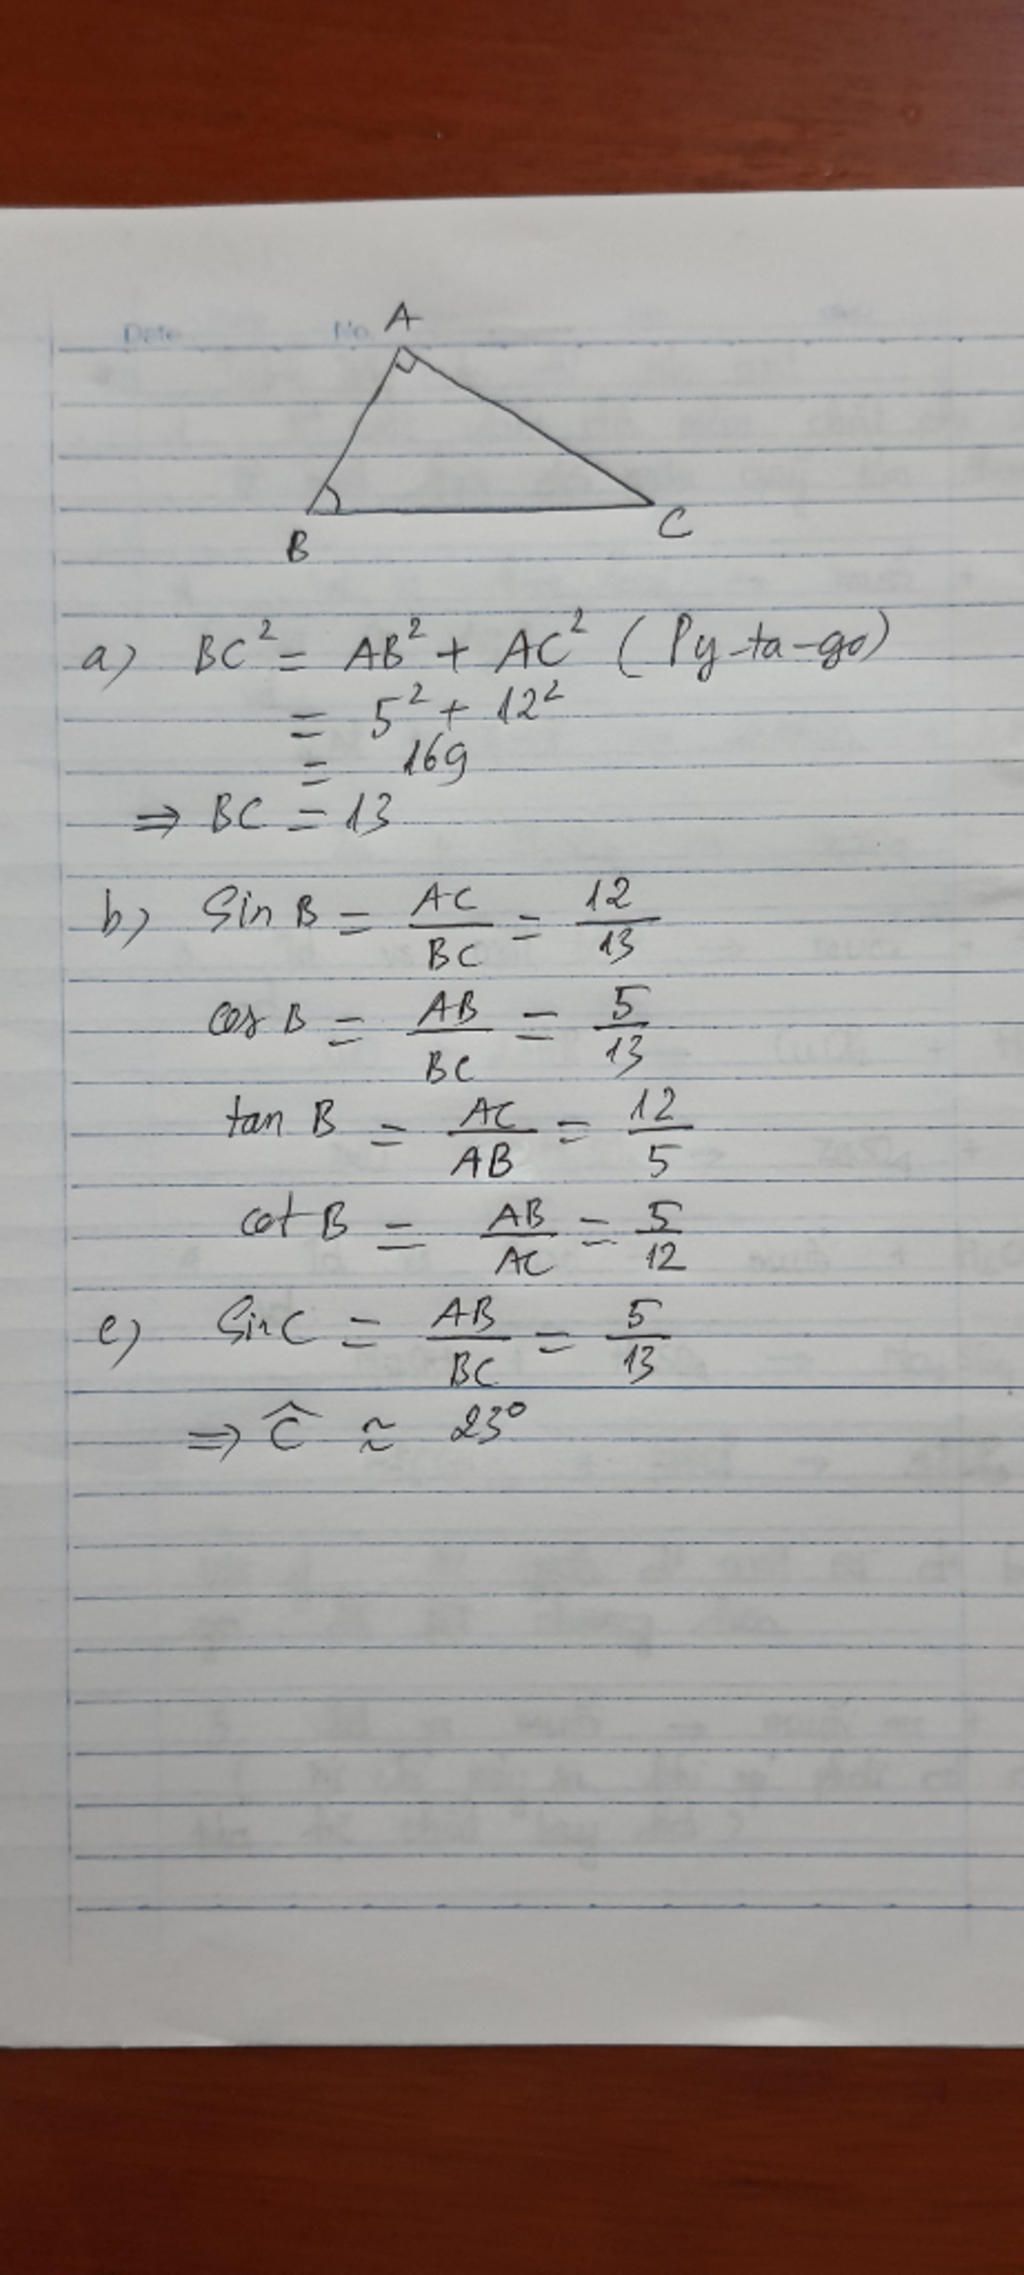 Date No
A
B
C
a) BC² = AB² + AC² (Py-ta-go)
= 5² + 12²
= 169
⇒ BC = 13
b) Sin B = AC/BC = 12/13
cos B = AB/BC = 5/13
tan B = AC/AB = 12/5
cot B = AB/AC = 5/12
c) Sin C = AB/BC = 5/13
⇒ Ĉ ≈ 23°